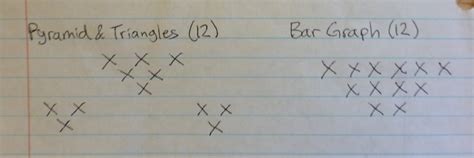 Pyramid & Triangles (12)
X X X
X X
X
X X
X
X X
X
Bar Graph (12)
X X X X X X
X X X X
X X